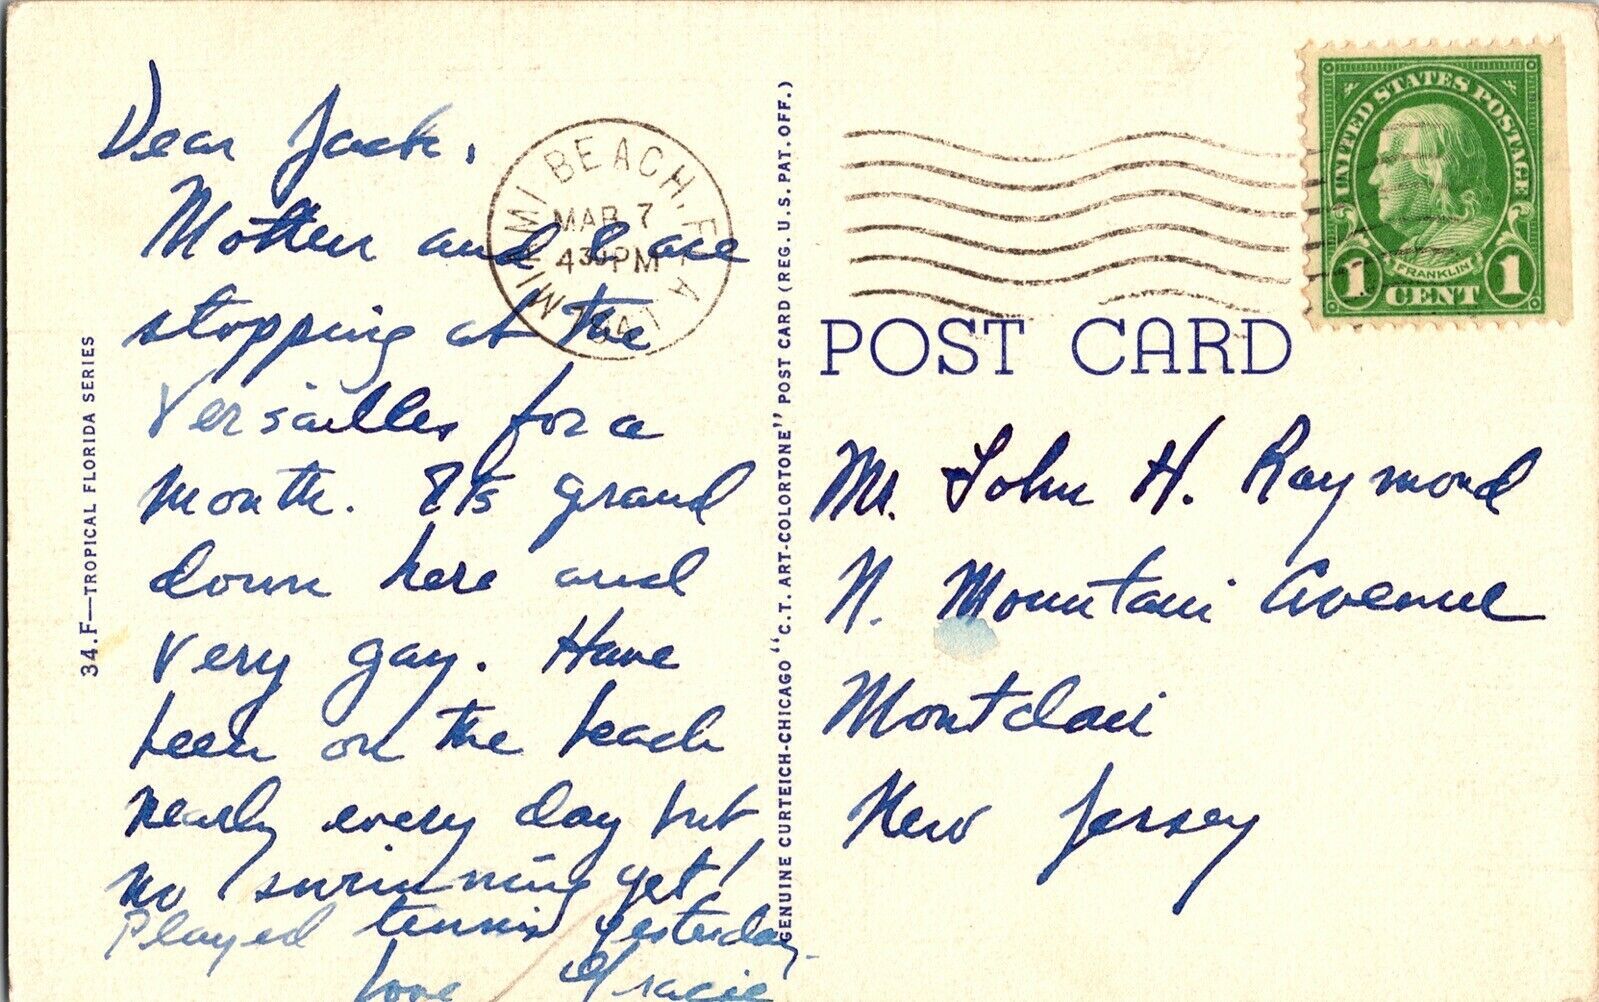 Dear Jack,
Mother and I are
stopping at the
Versailles for a
month. It's grand
down here and
very gay. Have
been on the beach
nearly every day but
no swimming yet!
Played tennis yesterday.
Love Gracie
MIAMI BEACH, FLA
MAR 7
430PM
UNITED STATES POSTAGE
FRANKLIN
1 CENT 1
POST CARD
Mr. John H. Raymond
N. Mountain Avenue
Montclair
New Jersey
34.F—TROPICAL FLORIDA SERIES
GENUINE CURTEICH-CHICAGO "C.T. ART-COLORTONE" POST CARD (REG. U.S. PAT. OFF.)